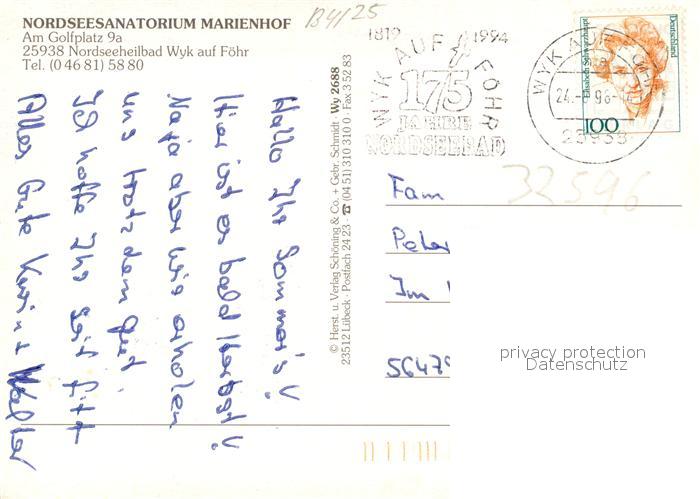 NORDSEESANATORIUM MARIENHOF
Am Golfplatz 9a
25938 Nordseeheilbad Wyk auf Föhr
Tel. (0 46 81) 58 80
B4/25
Hallo Ihr Sommer's!
Hier ist es bald Herbst!
Naja aber wir erholen
uns trotzdem gut!
Ich hoffe Ihr seit fitt
Alles Gute Karin + Walter
© Herst. u. Verlag Schöning & Co. + Gebr. Schmidt · Wy 2688
23512 Lübeck · Postfach 24 23 · ☎ (04 51) 310 310 0 · Fax 3 52 83
1819 1994
WYK AUF FÖHR
175
JAHRE
NORDSEEBAD
WYK AUF FÖHR
24.
25938
Deutschland
100
32596
Fam
Peter
Im
56479
privacy protection
Datenschutz